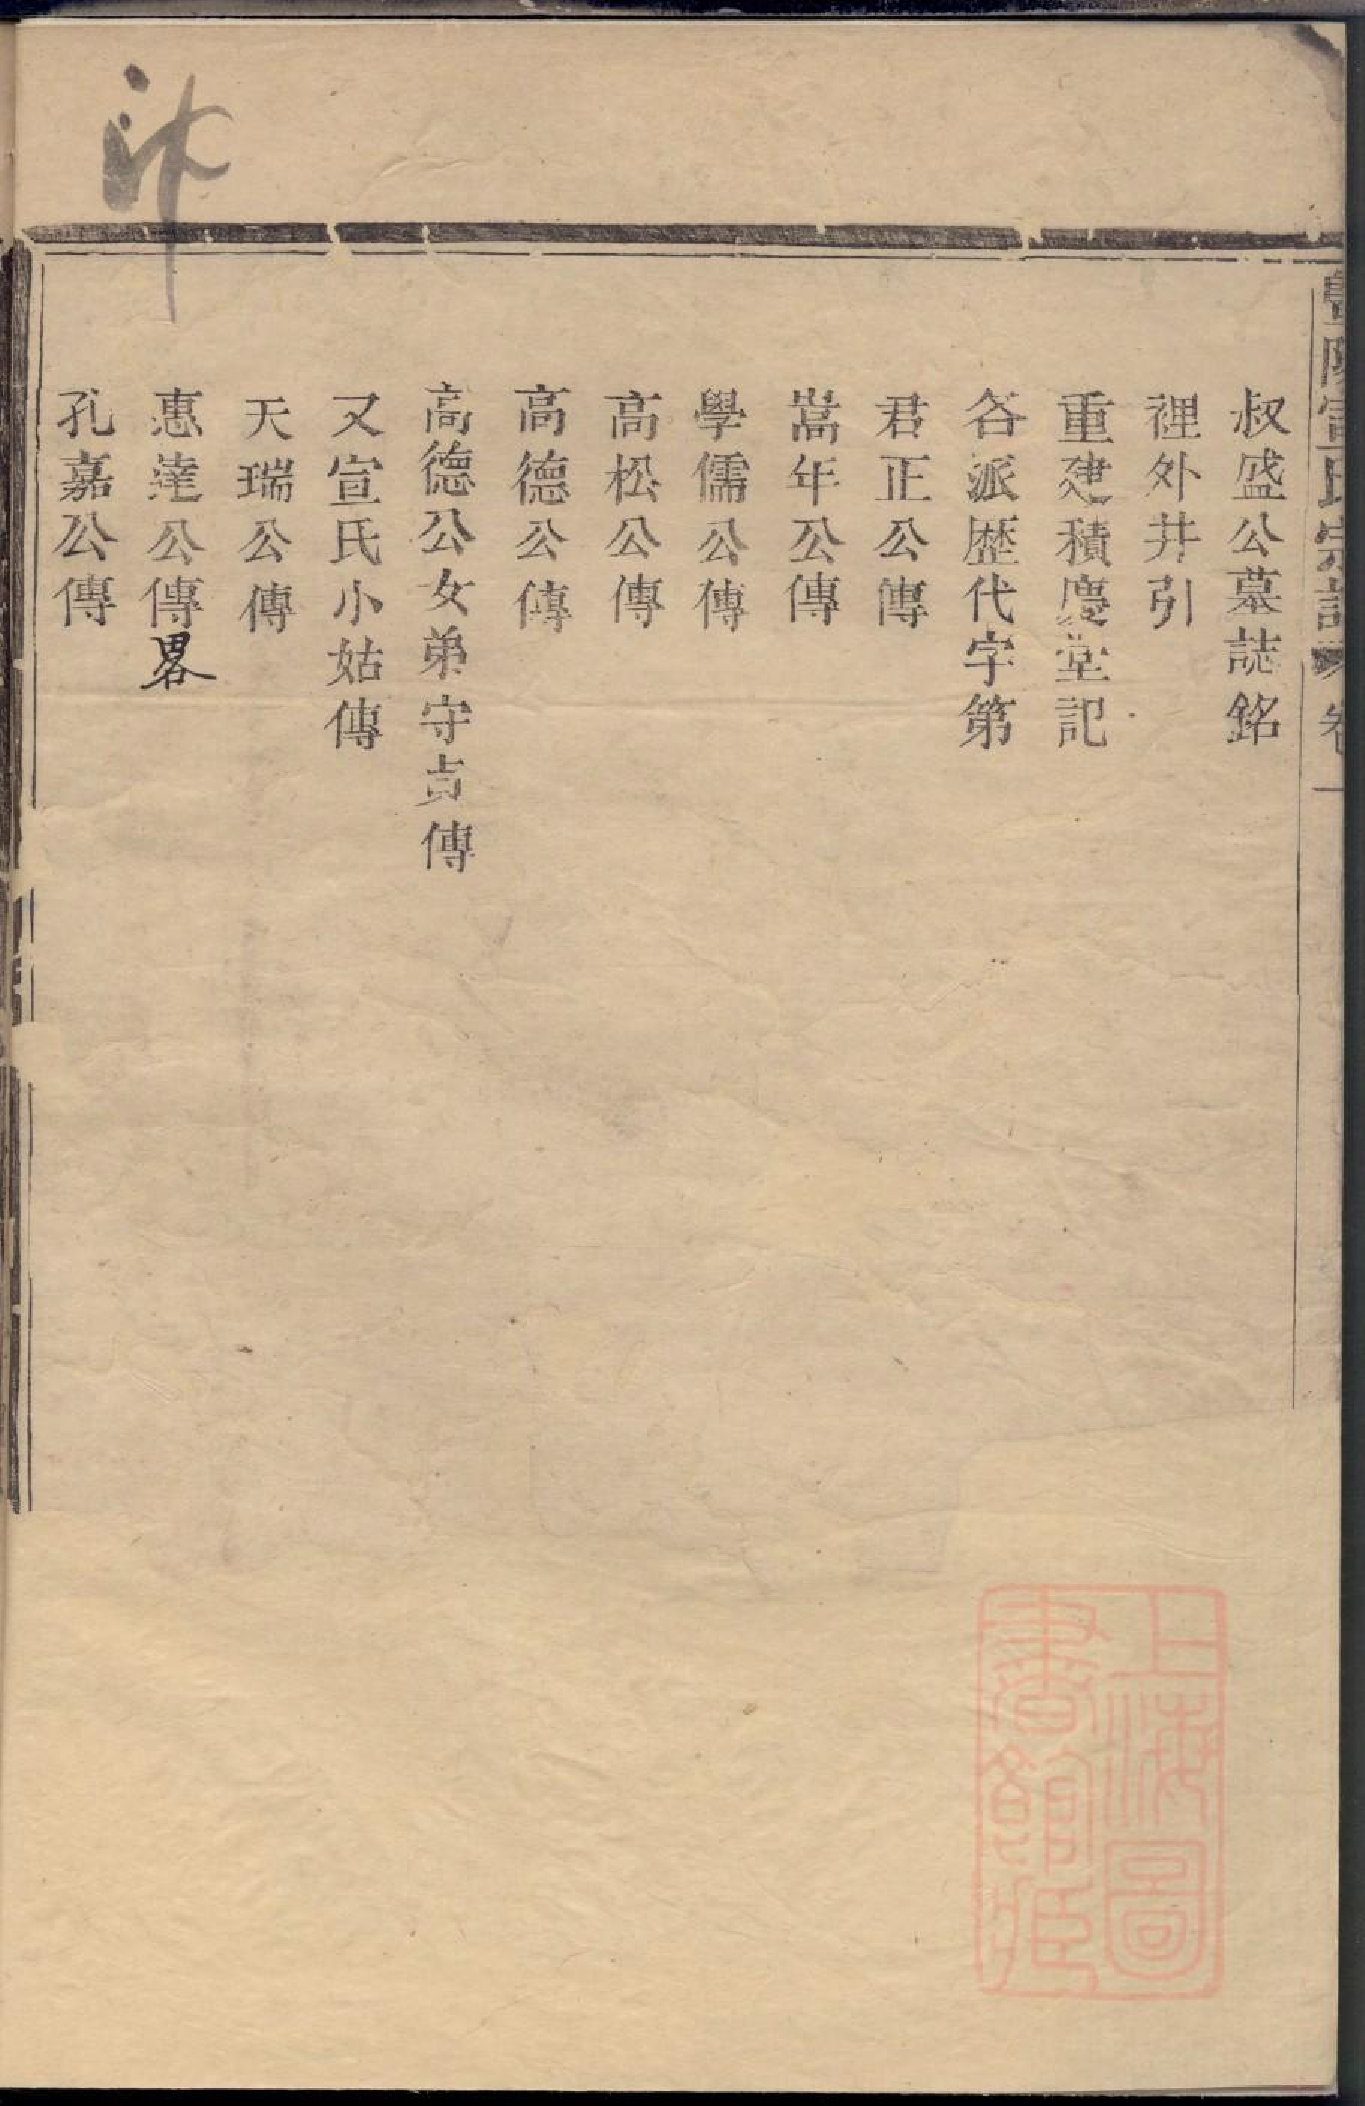 暨陽宣氏宗譜 卷一
叔盛公墓誌銘
裡外井引
重建積慶堂記
各派歴代字第
君正公傳
嵩年公傳
學儒公傳
高松公傳
高德公傳
高德公女弟守貞傳
又宣氏小姑傳
天瑞公傳
惠達公傳畧
孔嘉公傳
上海圖
書館藏